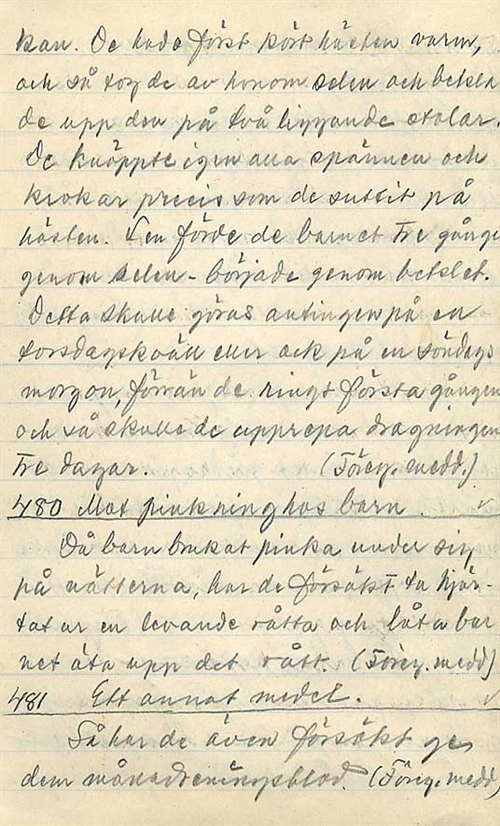 kan. De hade först kört hästen varm,
och så tog de av honom selen och betsla
de upp den på två liggande stolar.
De knäppte igen alla spännen och
krokar precis som de suttit på
hästen. Sen förde de barnet tre gånge
genom selen - började genom betslet.
Detta skulle göras antingen på en
torsdagskväll eller ock på en söndags
morgon, förrän de ringt första gången
och så skulle de upprepa dragningen
tre dagar. (Föreg. medd.)
480 Mot pinkning hos barn.
Då barn brukat pinka under sig
på nätterna, har de försökt ta hjär-
tat ur en levande råtta och låta bar
net äta upp det rått. (Föreg. medd)
481 Ett annat medel.
Så har de även försökt ge
dem månadreningsblod. (Föreg. medd)